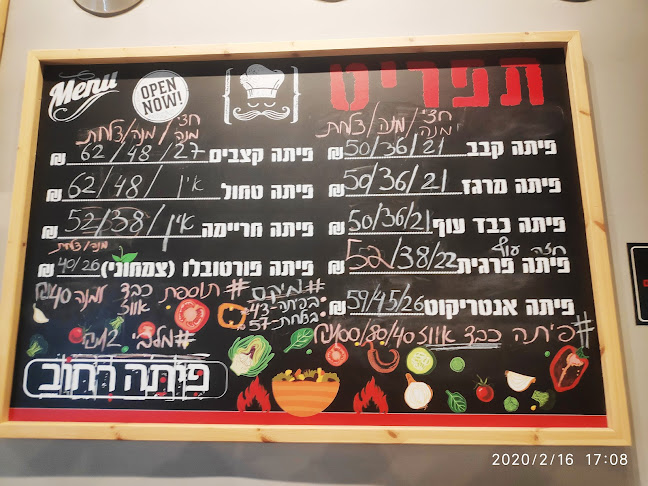 Menu
OPEN NOW!
תפריט
חצי מנה / מנה / צלחת
פיתה קבב 50/36/21 ₪
פיתה מרגז 50/36/21 ₪
פיתה כבד עוף 50/36/21 ₪
חזה עוף
פיתה פרגית 52/38/22 ₪
פיתה אנטריקוט 59/45/26 ₪
#פיתה כבד אווז 100/80/40₪
חצי מנה / מנה / צלחת
פיתה קצבים 62/48/27 ₪
פיתה טחול 62/48/אין ₪
פיתה חריימה 52/38/אין ₪
מנה/צלחת
פיתה פורטובלו (צמחוני) 40/26 ₪
#תוספת כבד אווז למנה 40₪
#מיקס
בפיתה-43
בצלחת-57
#מלבי 12₪
פיתה רחוב
2020/2/16 17:08